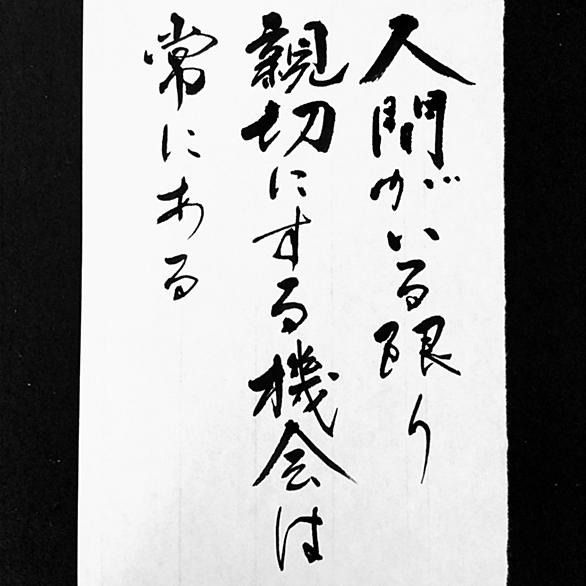 人間がいる限り
親切にする機会は
常にある